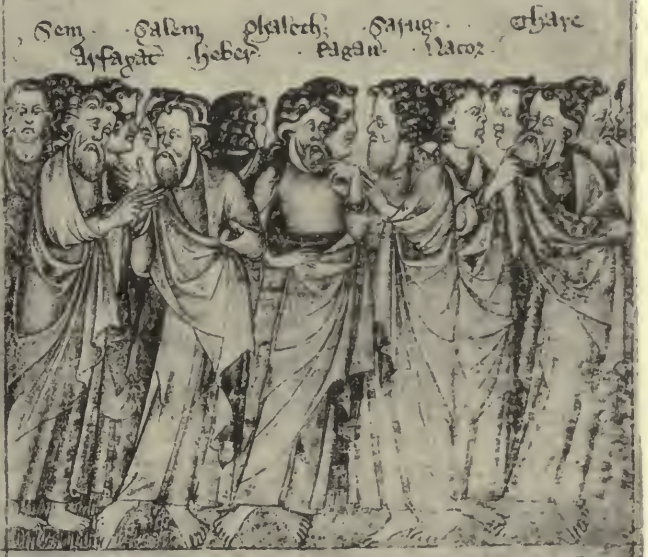 Sem · Salem phalech Sarug · Thare
Arfaxat · heber · Ragau · Nacor ·